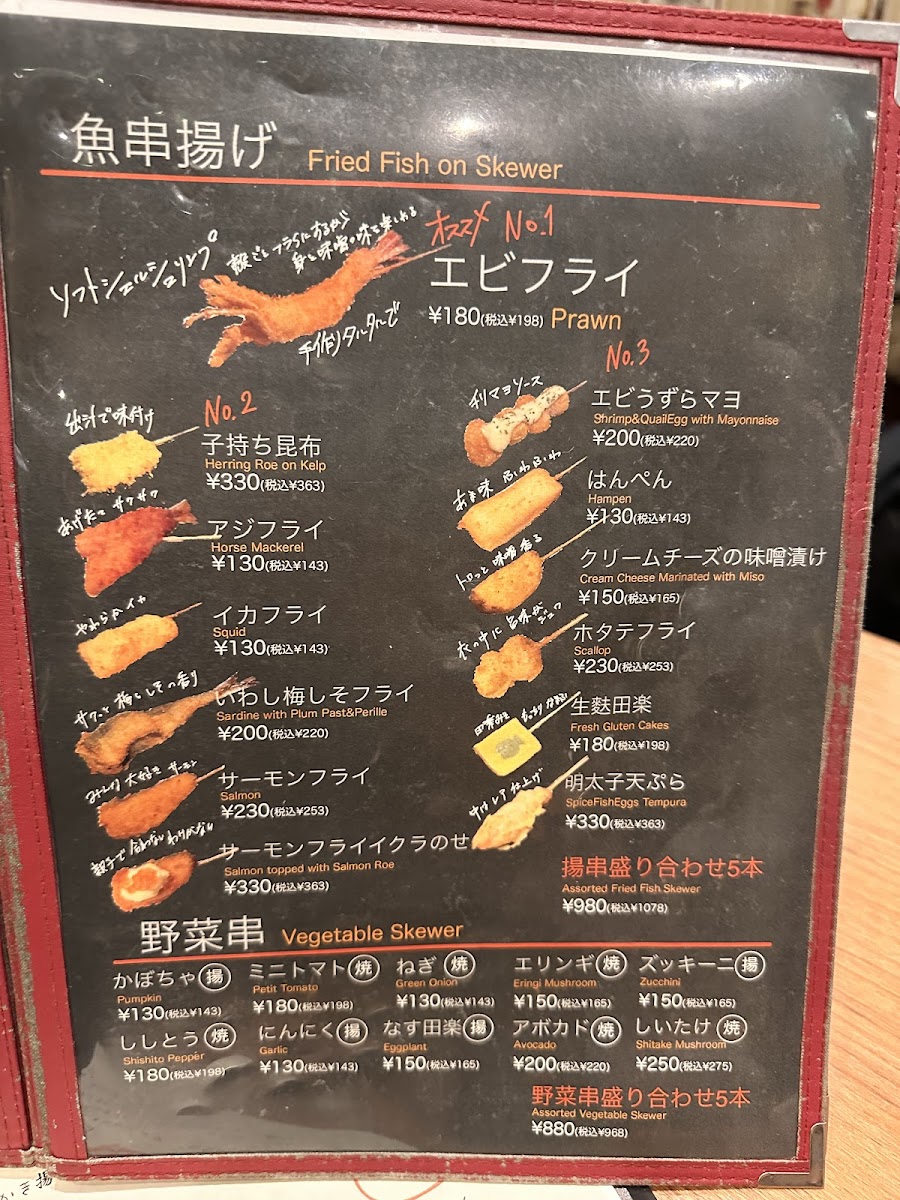 魚串揚げ Fried Fish on Skewer
ソフトシェルシュリンプ
殻ごとフライにするから
身と味噌の味も楽しめる
手作りタルタルで
オススメ No.1
エビフライ
¥180(税込¥198) Prawn
出汁で味付け
No.2
子持ち昆布
Herring Roe on Kelp
¥330(税込¥363)
あげたて サクサク
アジフライ
Horse Mackerel
¥130(税込¥143)
やわらかイカ
イカフライ
Squid
¥130(税込¥143)
サクッと梅としその香り
いわし梅しそフライ
Sardine with Plum Past&Perille
¥200(税込¥220)
みんな 大好き サーモン
サーモンフライ
Salmon
¥230(税込¥253)
親子で 合わない わけがない
サーモンフライイクラのせ
Salmon topped with Salmon Roe
¥330(税込¥363)
No.3
チリマヨソース
エビうずらマヨ
Shrimp&QuailEgg with Mayonnaise
¥200(税込¥220)
ふわふわ
はんぺん
Hampen
¥130(税込¥143)
トロっと 味噌香る
クリームチーズの味噌漬け
Cream Cheese Marinated with Miso
¥150(税込¥165)
衣の中に 旨味が ジュワ
ホタテフライ
Scallop
¥230(税込¥253)
田楽みそ
生麩田楽
Fresh Gluten Cakes
¥180(税込¥198)
レア仕上げ
明太子天ぷら
SpiceFishEggs Tempura
¥330(税込¥363)
揚串盛り合わせ5本
Assorted Fried Fish Skewer
¥980(税込¥1078)
野菜串 Vegetable Skewer
かぼちゃ 揚
Pumpkin
¥130(税込¥143)
ミニトマト 焼
Petit Tomato
¥180(税込¥198)
ねぎ 焼
Green Onion
¥130(税込¥143)
エリンギ 焼
Eringi Mushroom
¥150(税込¥165)
ズッキーニ 揚
Zucchini
¥150(税込¥165)
ししとう 焼
Shishito Pepper
¥180(税込¥198)
にんにく 揚
Garlic
¥130(税込¥143)
なす田楽 揚
Eggplant
¥150(税込¥165)
アボカド 焼
Avocado
¥200(税込¥220)
しいたけ 焼
Shitake Mushroom
¥250(税込¥275)
野菜串盛り合わせ5本
Assorted Vegetable Skewer
¥880(税込¥968)